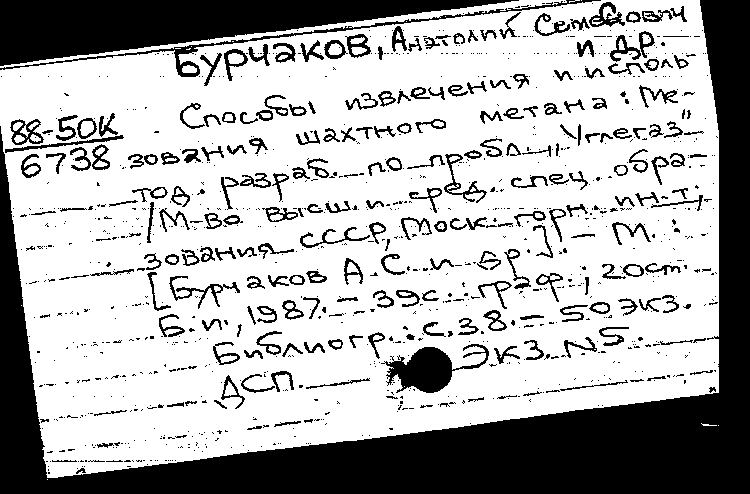 Бурчаков, Анатолий Семенович
и др.
88-50К
6738
Способы извлечения и исполь
зования шахтного метана: Ме-
тод. разраб. по пробл. „Углегаз"
/М-во высш. и сред. спец. обра-
зования СССР, Моск. горн. ин-т;
[Бурчаков А.С. и др.]. - М.:
Б.и., 1987. - 39с.: граф.; 20см. -
Библиогр.: с.38. - 50 экз.
ДСП. Экз. N5.